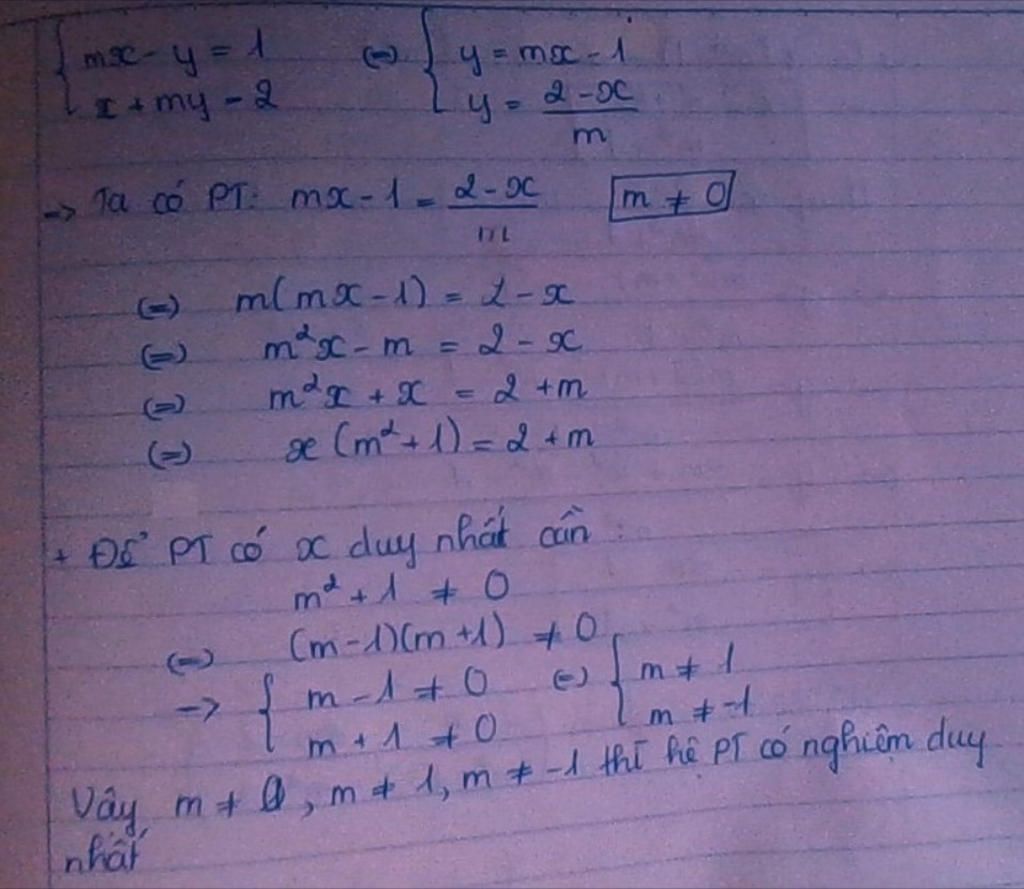 { mx - y = 1 (=) { y = mx - 1
x + my = 2 y = (2 - x)/m
-> Ta có PT: mx - 1 = (2 - x)/m m ≠ 0
(=) m(mx - 1) = 2 - x
(=) m²x - m = 2 - x
(=) m²x + x = 2 + m
(=) x(m² + 1) = 2 + m
+ Để PT có x duy nhất cần :
m² + 1 ≠ 0
(=) (m - 1)(m + 1) ≠ 0
-> { m - 1 ≠ 0 (=) { m ≠ 1
m + 1 ≠ 0 m ≠ -1
Vậy m ≠ 0, m ≠ 1, m ≠ -1 thì hệ PT có nghiệm duy
nhất